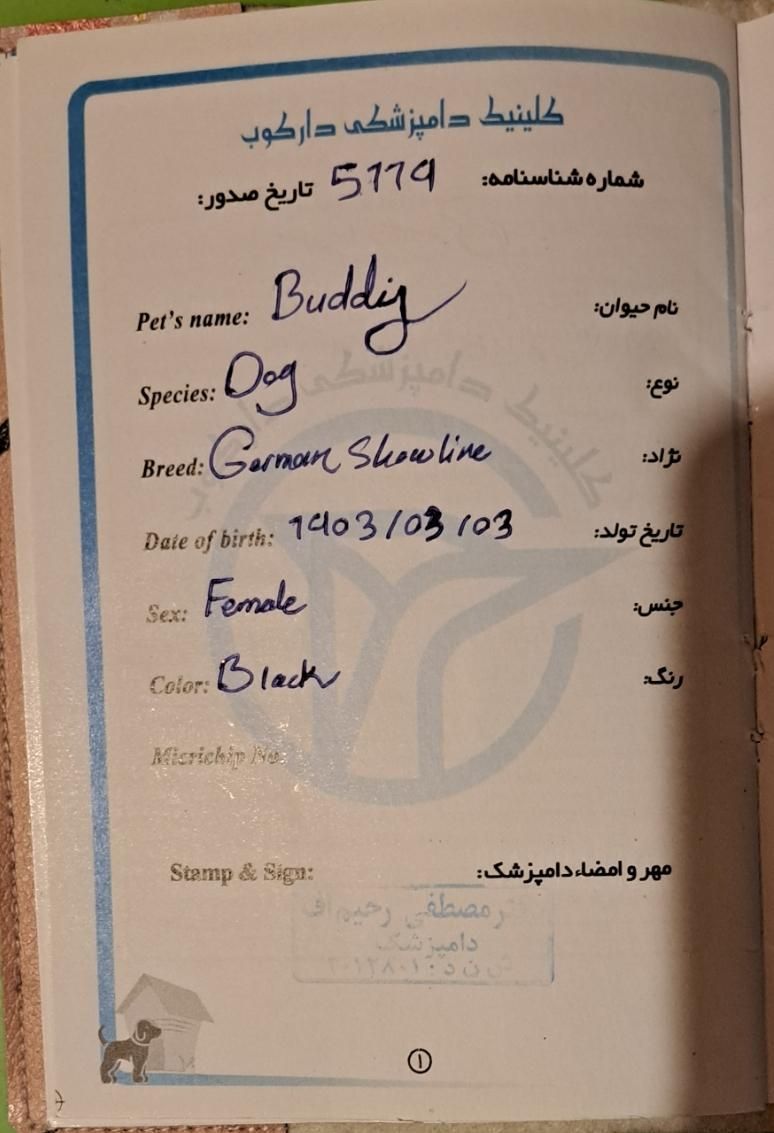 کلینیک دامپزشکی دارکوب
شماره شناسنامه: 5779 تاریخ صدور:
Pet's name: Buddiy نام حیوان:
Species: Dog نوع:
Breed: German Showline نژاد:
Date of birth: 1403/03/03 تاریخ تولد:
Sex: Female جنس:
Color: Black رنگ:
Micrichip No:
Stamp & Sign: مهر و امضاء دامپزشک:
مصطفی رحیم
دامپزشک
ن د : ۲۰۱۲۸۰۱
کلینیک دامپزشکی
۱